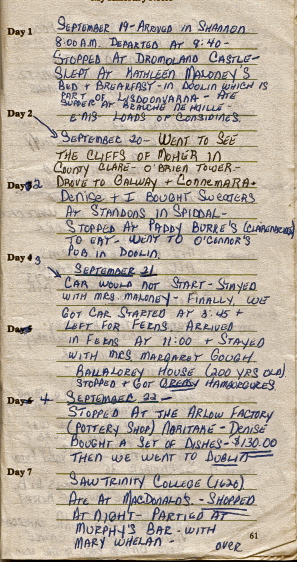 Day 1
SEPTEMBER 19 - ARRIVED IN SHANNON
8:00 A.M. DEPARTED AT 9:40 -
STOPPED AT DROMOLAND CASTLE -
SLEPT AT KATHLEEN MALONEY'S
BED + BREAKFAST - IN DOOLIN WHICH IS
PART OF LISDOONVARNA - ATE
SUPPER AT
LOADS OF CONSIDINES.
Day 2
SEPTEMBER 20 - WENT TO SEE
THE CLIFFS OF MOHER IN
COUNTY CLARE - O'BRIEN TOWER -
Day 2
DROVE TO GALWAY + CONNEMARA -
DENISE + I BOUGHT SWEATERS
AT STANDONS IN SPIDDAL -
STOPPED AT PADDY BURKE'S
TO EAT - WENT TO O'CONNOR'S
PUB IN DOOLIN.
Day 3
SEPTEMBER 21
CAR WOULD NOT START - STAYED
WITH MRS. MALONEY - FINALLY, WE
GOT CAR STARTED AT 3:45 +
LEFT FOR FERNS. ARRIVED
Day
IN FERNS AT 11:00 + STAYED
WITH MRS MARGARET GOUGH.
BALLALOREY HOUSE (200 YRS OLD)
STOPPED + GOT GREASY HAMBURGURES
Day 4
SEPTEMBER 22 -
STOPPED AT THE ARLOW FACTORY
(POTTERY SHOP) NORITAKE - DENISE
BOUGHT A SET OF DISHES - $130.00
THEN WE WENT TO DUBLIN
Day 7
SAW TRINITY COLLEGE (1620)
ATE AT MACDONALD'S - SHOPPED
AT NIGHT - PARTIED AT
MURPHY'S BAR - WITH
MARY WHELAN -
61
OVER